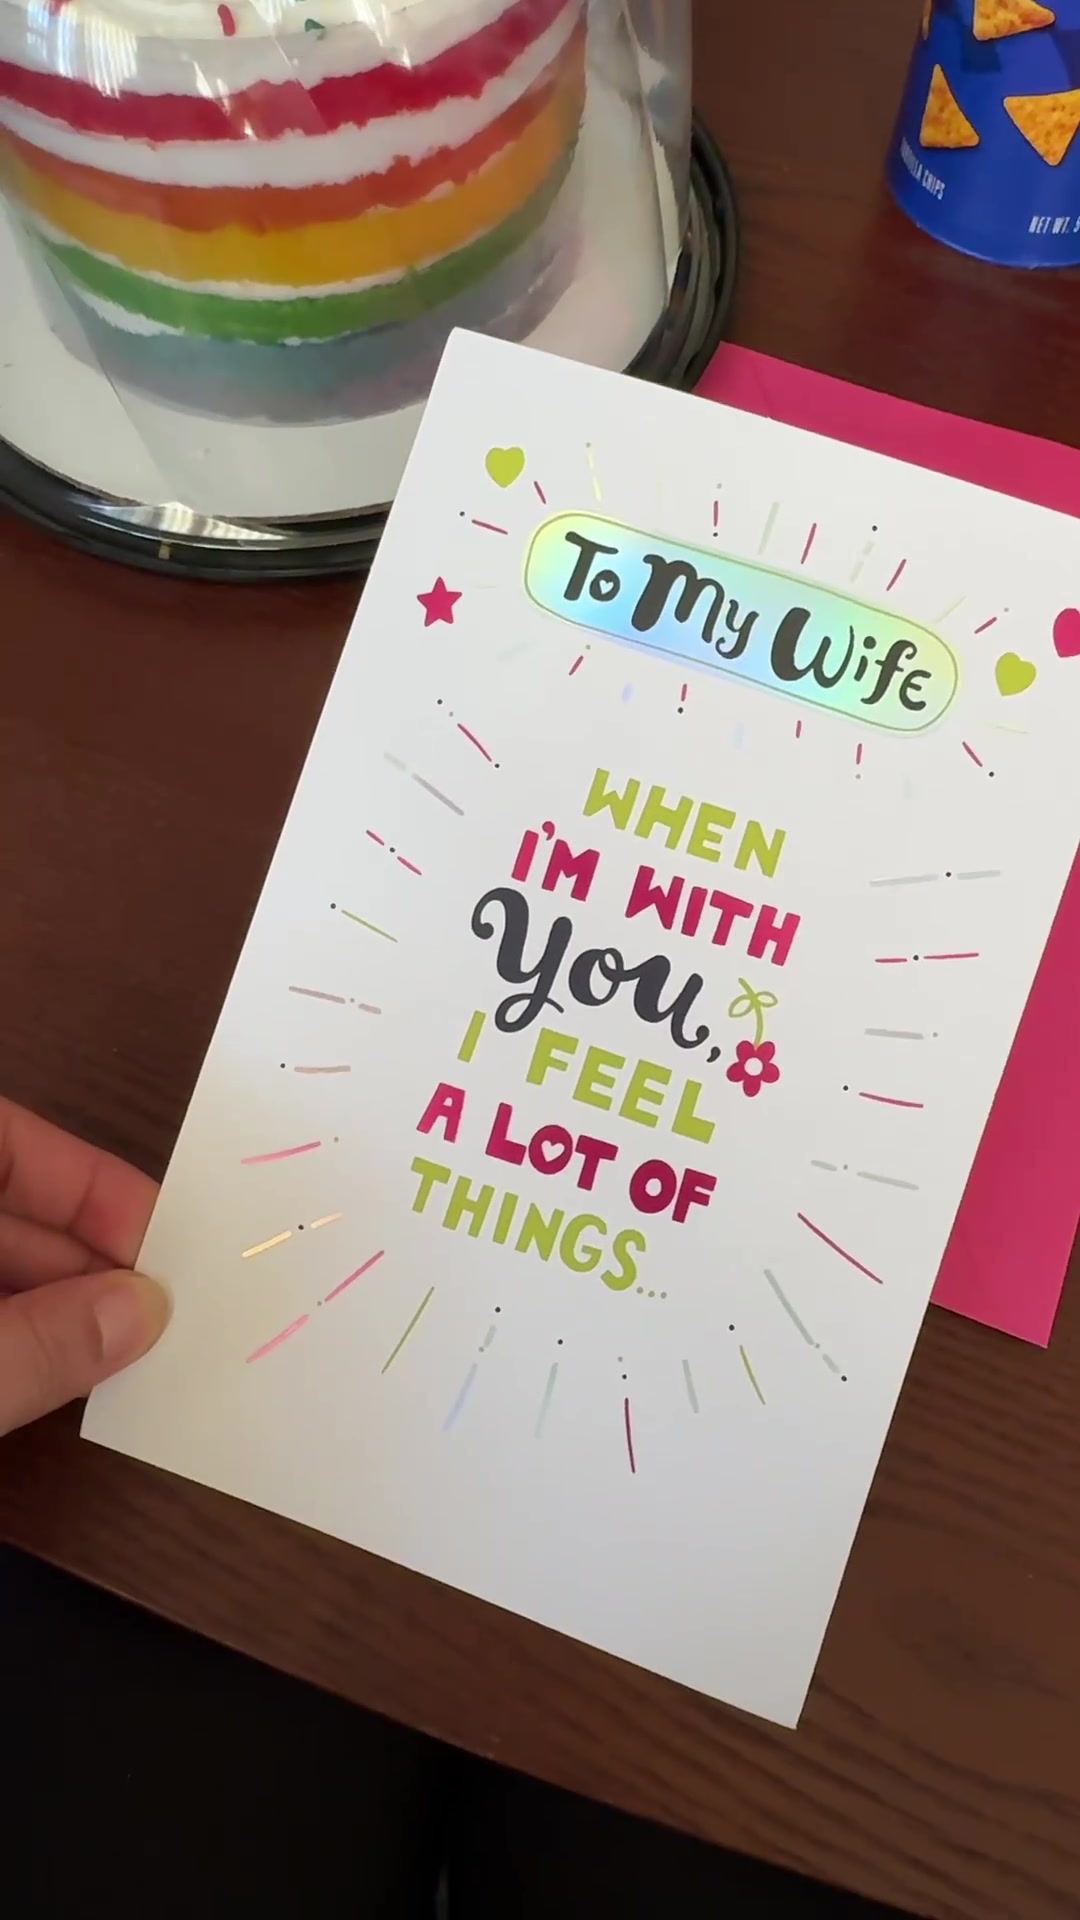 CHIPS
NET WT.
To My Wife
WHEN
I'M WITH
You,
I FEEL
A LOT OF
THINGS...